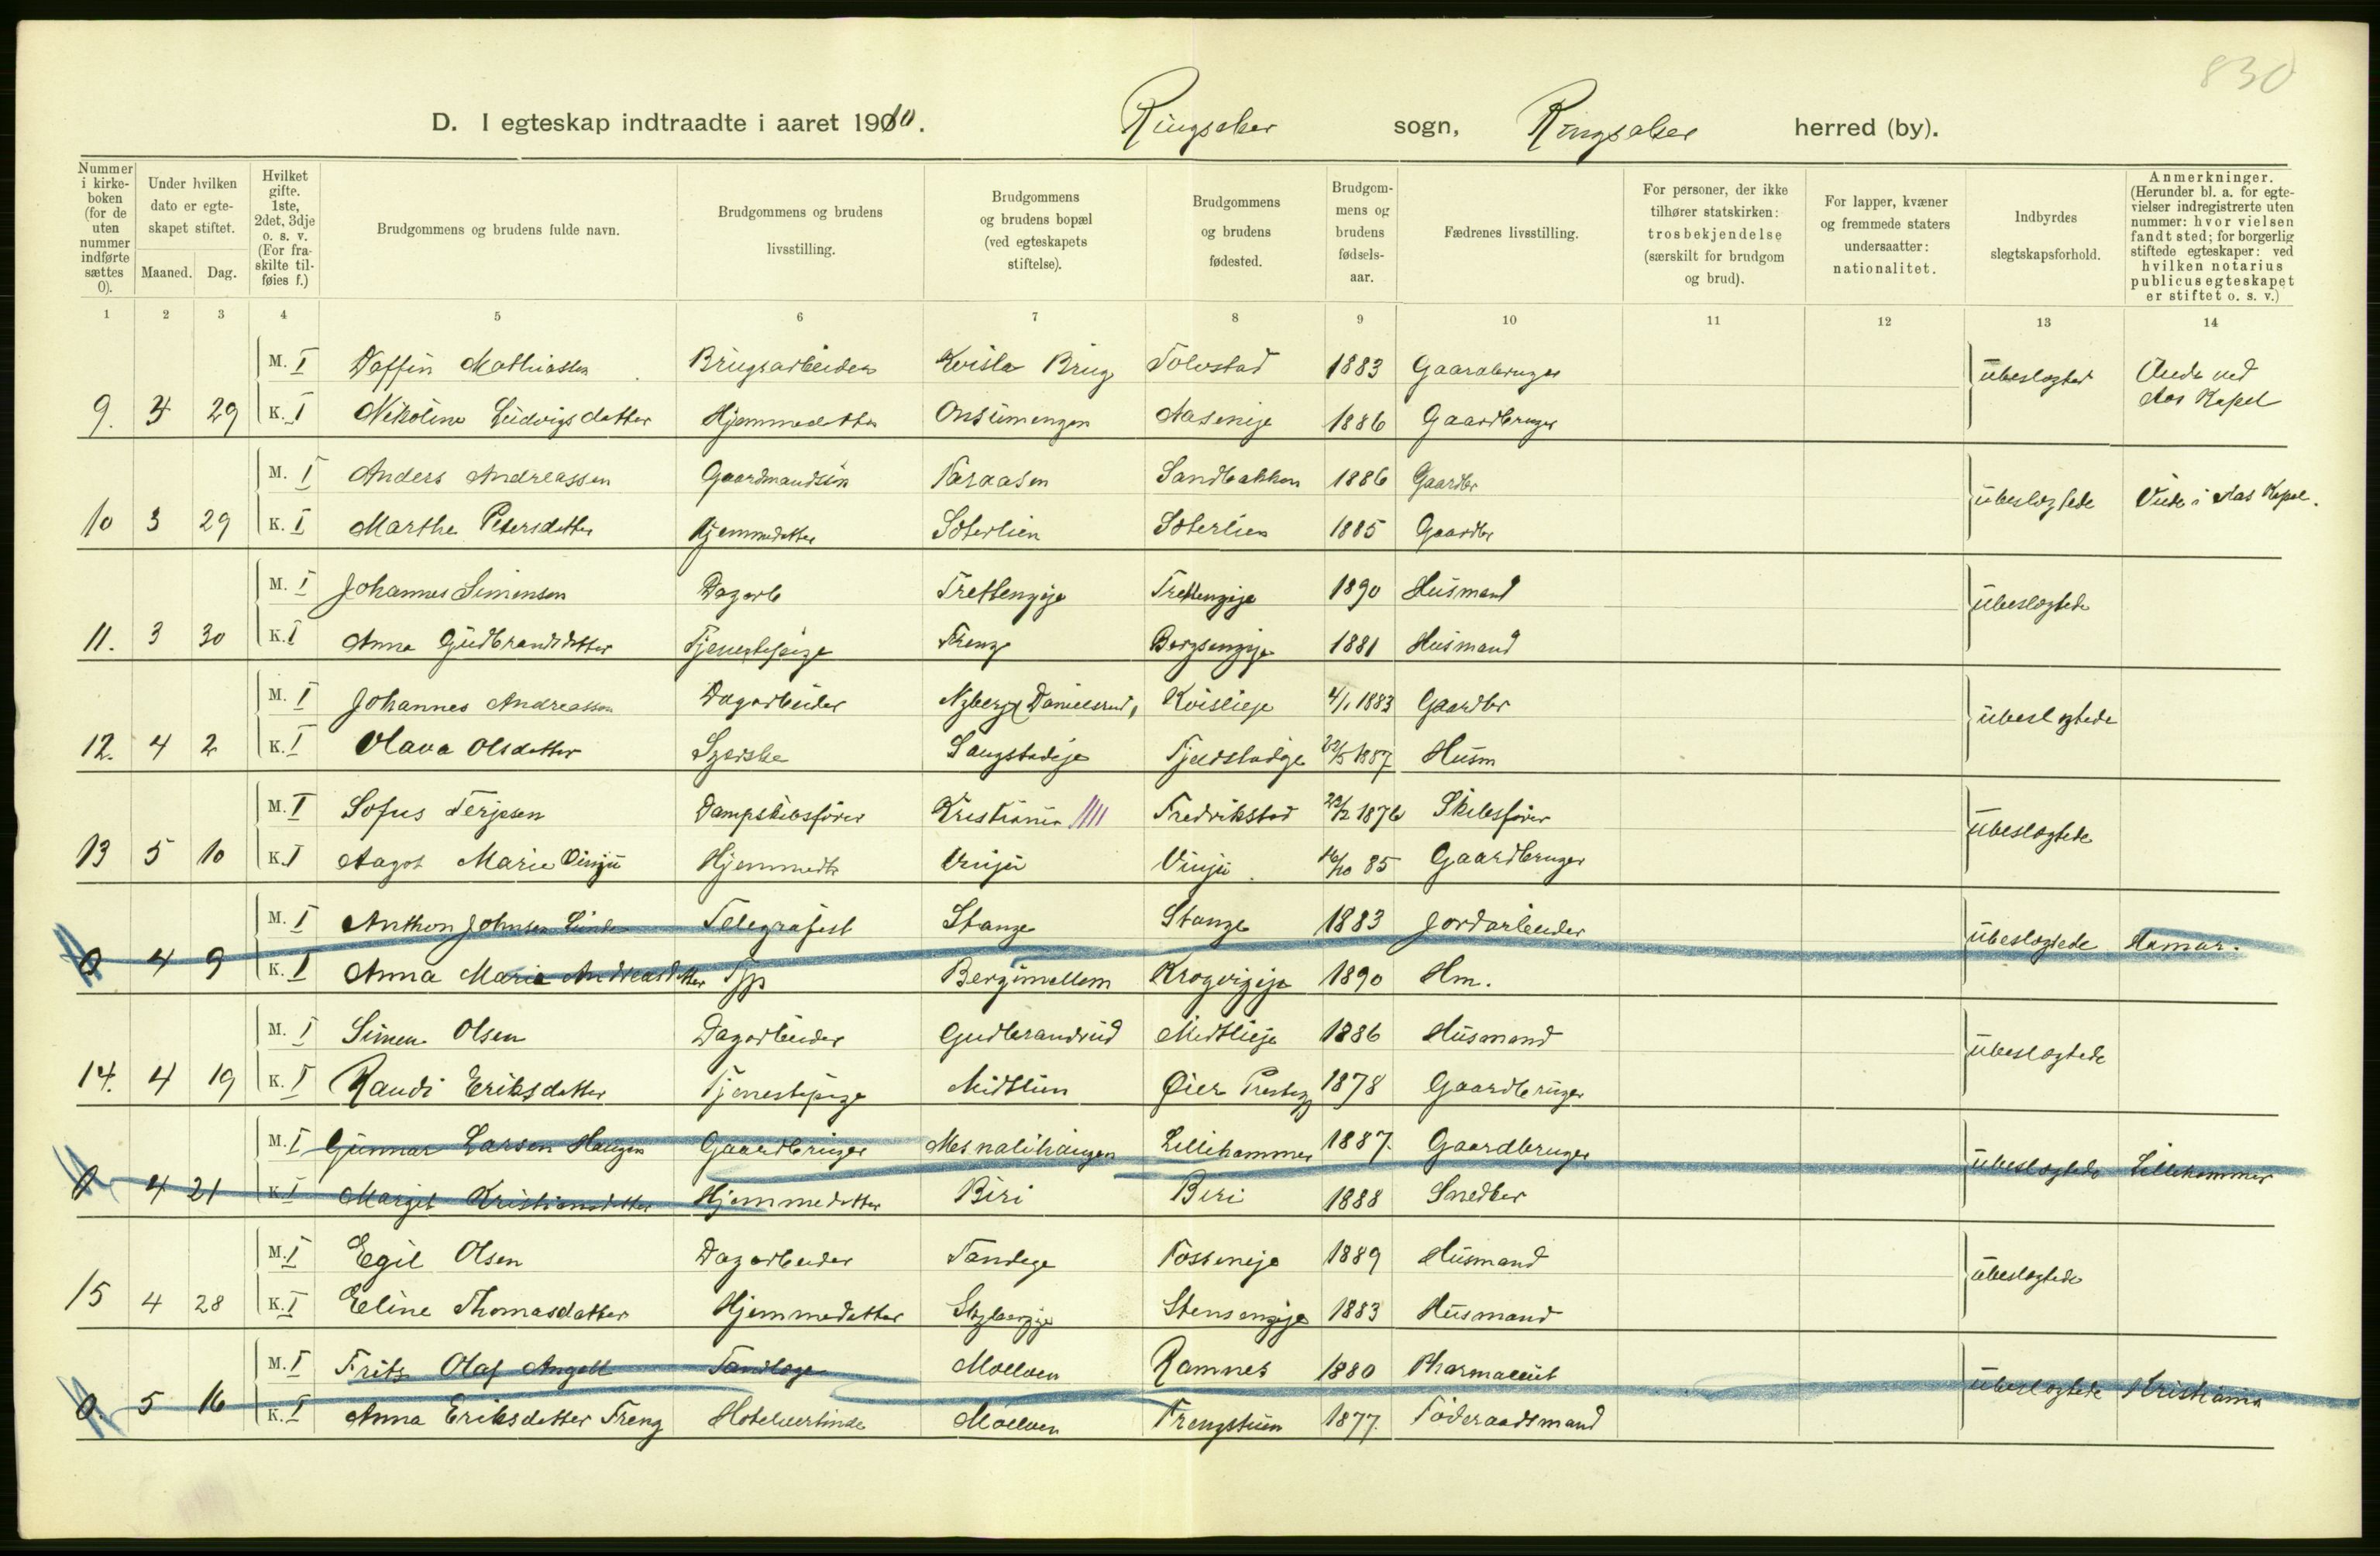 830
D. I egteskap indtraadte i aaret 1910. Ringsaker sogn, Ringsaker herred (by).
Nummer i kirke- boken (for de uten nummer indførte sættes 0).
Under hvilken dato er egte- skapet stiftet.
Maaned. Dag.
Hvilket gifte. 1ste, 2det, 3dje o. s. v. (For fra- skilte til- føies f.)
Brudgommens og brudens fulde navn.
Brudgommens og brudens livsstilling.
Brudgommens og brudens bopæl (ved egteskapets stiftelse).
Brudgommens og brudens fødested.
Brudgom- mens og brudens fødsels- aar.
Fædrenes livsstilling.
For personer, der ikke tilhører statskirken: trosbekjendelse (særskilt for brudgom og brud).
For lapper, kvæner og fremmede staters undersaatter: nationalitet.
Indbyrdes slegtskapsforhold.
Anmerkninger. (Herunder bl. a. for egte- vielser indregistrerte uten nummer: hvor vielsen fandt sted; for borgerlig stiftede egteskaper: ved hvilken notarius publicus egteskapet er stiftet o. s. v.)
1 2 3 4 5 6 7 8 9 10 11 12 13 14
M. I Daffin Mathiassen Brugsarbeider Kvisla Brug Tolvstad 1883 Gaardbruger ubeslogted
9. 3 29 K. I Nikoline Ludvigsdatter Hjemmedatter Onsumengen Aaseneje 1886 Gaardbruger Aas Kapel
M. I Anders Andreassen Gaardmandssøn Taraasen Sandbakken 1886 Gaardbr ubeslogtede Viede i Aas Kapel.
10 3 29 K. I Marthe Petersdatter Hjemmedatter Sæterlien Sæterlien 1885 Gaardbr
M. I Johannes Simensen Dagarb Trettengeje Trettengeje 1890 Husmand ubeslogtede
11. 3 30 K. I Anna Gudbrandsdatter Tjenestepige Freng Bergsengeje 1881 Husmand
M. I Johannes Andreassen Dagarbeider Nyberg (Danielsrud) Kvislieje 4/1 1883 Gaardbr ubeslogtede
12. 4 2 K. I Olava Olsdatter Syerske Saugstadeje Fjeldstadeje 22/5 1887 Husm
M. I Sofus Terjesen Dampskibsfører Kristiania Fredrikstad 22/2 1876 Skibsfører ubeslogtede
13 5 10 K. I Aagot Marie Vinju Hjemmedtr Vinju Vinju 16/10 85 Gaardbruger
M. I Anthon Johnsen Linde Telegrafist Stange Stange 1883 Jordarbeider ubeslogtede Hamar.
0 4 9 K. I Anna Marie Andreasdatter Tjp Bergimellem Krogvigeje 1890 Hm.
M. I Simen Olsen Dagarbeider Gudbrandrud Midtlieje 1886 Husmand ubeslogtede
14. 4 19 K. I Randi Eriksdatter Tjenestepige Midtlien Øier Presteg 1878 Gaardbruger
M. I Gunnar Larsen Haugen Gaardbruger Mesnalihaugen Lillehammer 1887. Gaardbruger ubeslogtede Lillehammer
0 4 21 K. I Margit Kristiansdatter Hjemmedatter Biri Biri 1888 Snedker
M. I Egil Olsen Dagarbeider Tandeje Fosseneje 1889 Husmand ubeslogtede
15 4 28 K. I Eline Thomasdatter Hjemmedatter Stybergeje Stensengeje 1883 Husmand
M. I Frits Olaf Angell Tandlæge Moelven Ramnes 1880 Pharmaceut ubeslogtede Kristiania
0. 5 16 K. I Anna Eriksdatter Freng Hotelvertinde Moelven Frengstuen 1877. Føderaadsmand